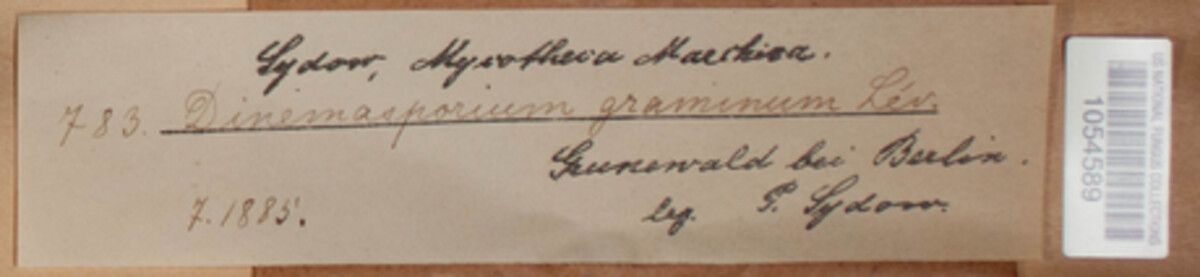 Sydow, Mycotheca Marchica.
783. Dinemasporium graminum Lév.
Grunewald bei Berlin.
7.1885.
leg. P. Sydow.
US NATIONAL FUNGUS COLLECTIONS
1054589